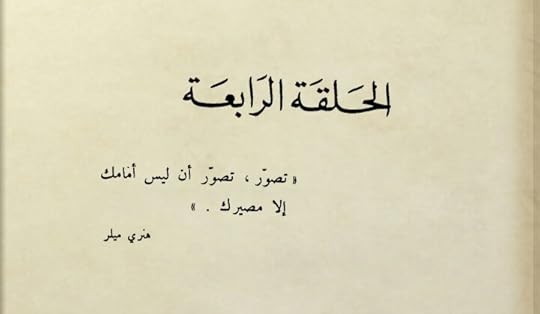 الحَلقَة الرَابعَة
« تصوّر ، تصوّر أن ليس أمامك
إلا مصيرك . »
هنري ميلر